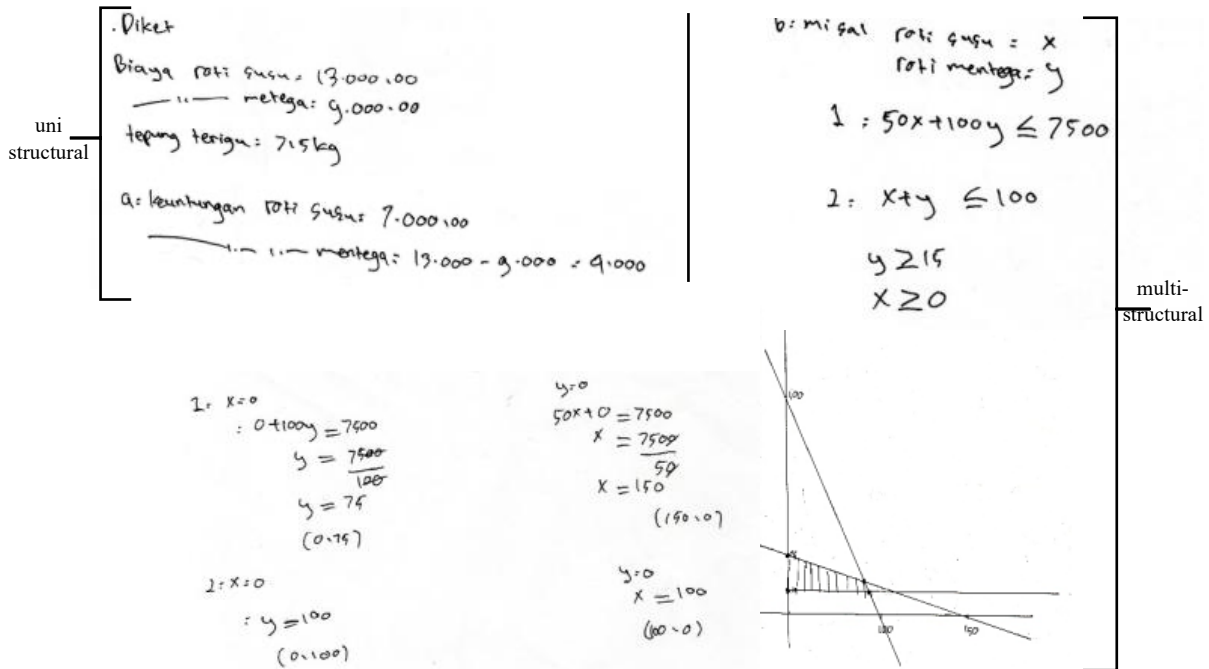 uni
structural
. Diket
Biaya roti susu = 13.000,00
—— ıı —— metega: 9.000.00
tepung terigu = 7,5kg
a= keuntungan roti susu= 7.000,00
—— ıı — ıı — mentega = 13.000 - 9.000 = 4.000
b= misal roti susu = x
roti mentega= y
1 = 50x+100y ≤ 7500
2 = x+y ≤ 100
y ≥ 15
x ≥ 0
multi-
structural
1= x=0
: 0+100y = 7500
y = 7500
100
y = 75
(0.75)
y=0
50x+0 = 7500
x = 7500
50
x = 150
(150.0)
2= x=0
: y = 100
(0.100)
y=0
x = 100
(100.0)
100
100
150